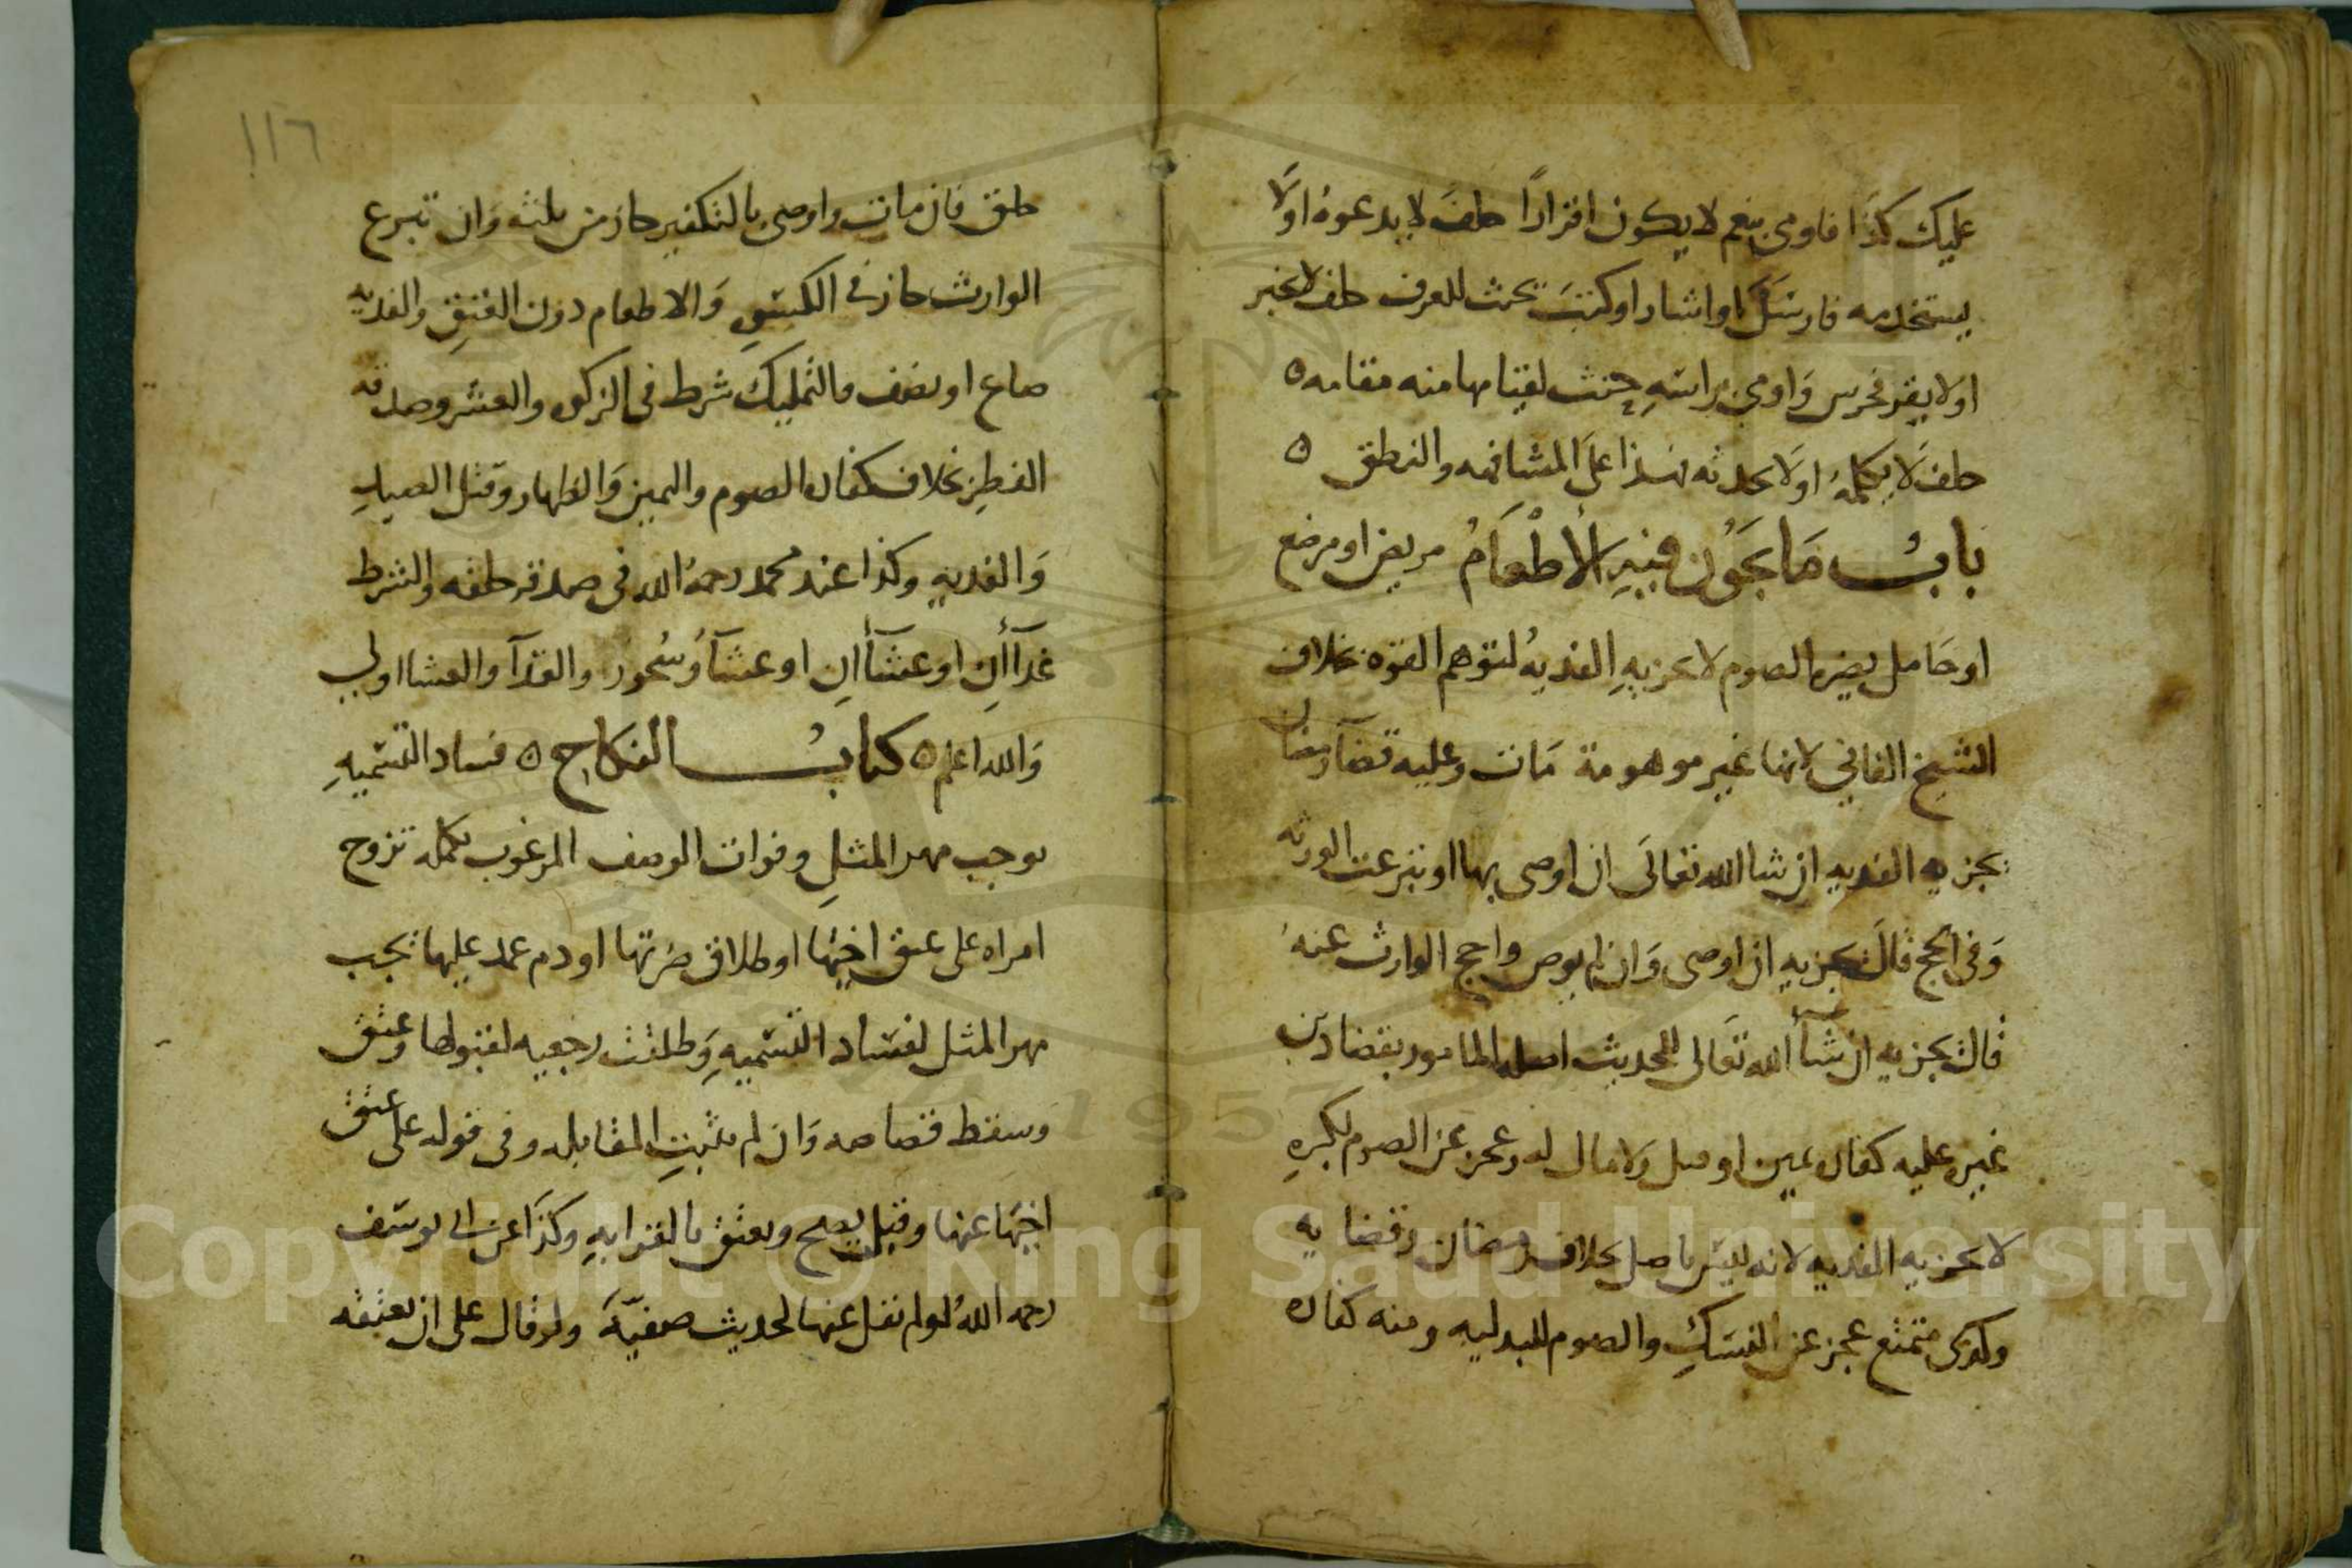 عليك كذا فاومى بنعم لا يكون اقرارًا حلف لا يدعوهُ اولا
يستخدمه فارسَلَ او اشار او كتبَ يحنث للعرف حلف لا يخبر
او لا يقر فخرس وَاومى براسَهِ حنث لقيامها منه مقامه ه
حلف لَا يكلمهُ اولَا يحدثه فهذا علَى المشافهه والنطق ه
بابُ مَا يَجُوز فيهِ الأطْعَامُ مريض او مرضع
او حَامل يضره الصوم لا يجزيهِ الفديهُ لتوهم القوه بخلاف
الشيخ الفاني لانها غير موهومة مَات وعليه قضآ رمضان
يجزيه الفديه ان شا الله تعالَى ان اوصى بها او تبرعت الورثه
وَفى الحج قالَ يجزيه ان اوصى وَان لم يوص واحج الوارث عنهُ
قال يجزيه ان شآأ الله تَعالى للحديث اصله المامور بقضا دَين
غيره عليه كفاره يمين او قتل وَلا مال له وعجز عن الصوم لكبرهِ
لا يجزيه الفديه لانه ليسَ باصل بخلاف رمضان وقضايه
وكذى متمتع عجز عن النسَكِ والصوم للبدليه ومنه كفاره
١١٦
حلق فان مات واوصى بالتكفير جاز من ثلثه وَان تبرع
الوارث جاز في الكسَوهِ وَالاطعام دون العتقِ والفديه
صاع او نصف والتمليك شرط في الزكوه والعشر وصدقه
الفطرِ بخلاف كفاره الصوم واليمين وَالظهار وقتل الصيدِ
وَالفديهِ وكذا عند محمد رحمهُ الله في صدقه حلقه والشرط
غدآأانِ او عشآأانِ او عشآ وُسُحور والغدآ والعشا اولى
وَالله اعلم ه كتابُ النكاحِ ه فساد التسَميهِ
يوجب مهر المثلِ وفوات الوصف المرغوب يكمله تزوج
امراه على عتق اخيهَا او طلاق ضرتها او دم عمد عليها يجب
مهر المثل لفسَاد التسَميهِ وَطلقت رجعيه لقبولها وعتق
وسقط قصاصه وَان لم يثبتِ المقابله وفى قوله على عتق
اخيهَا عنها وقبلت يصح ويعتق بالقرابهِ وكذَا عن ابى يوسَف
رحمه اللهُ لو لم تقل عنها لحديث صفيّةَ ولو قال على ان يعتقه
Copyright © King Saud University
1957